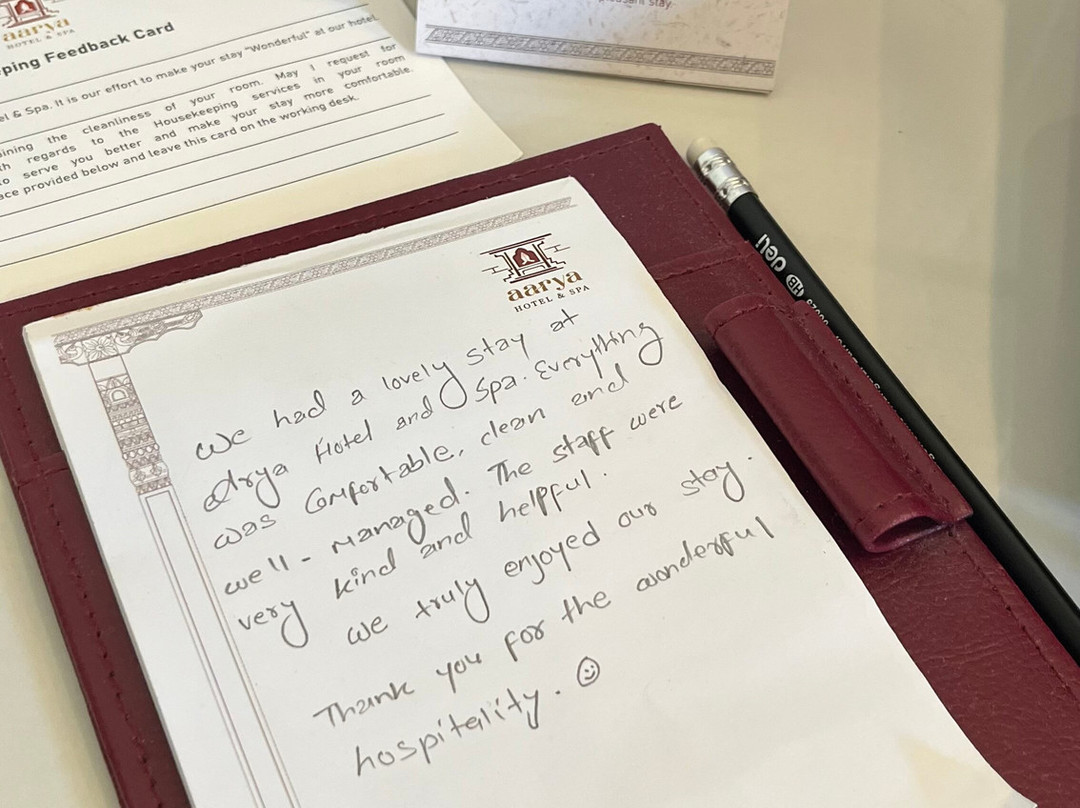 aarya
HOTEL & SPA
ping Feedback Card
el & Spa. It is our effort to make your stay "Wonderful" at our hotel.
ining the cleanliness of your room. May I request for
th regards to the Housekeeping services in your room
to serve you better and make your stay more comfortable.
ace provided below and leave this card on the working desk.
stay
aarya
HOTEL & SPA
We had a lovely stay at
Arya Hotel and Spa. Everything
was comfortable, clean and
well-managed. The staff were
very kind and helpful.
We truly enjoyed our stay.
Thank you for the wonderful
hospitality. ☺
deli
HB